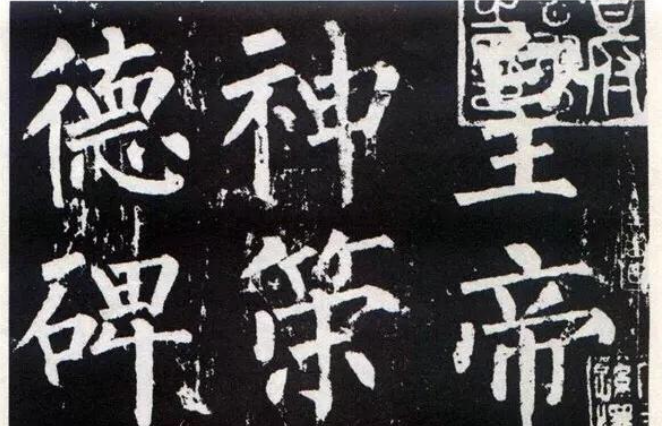 皇帝
神策
德碑